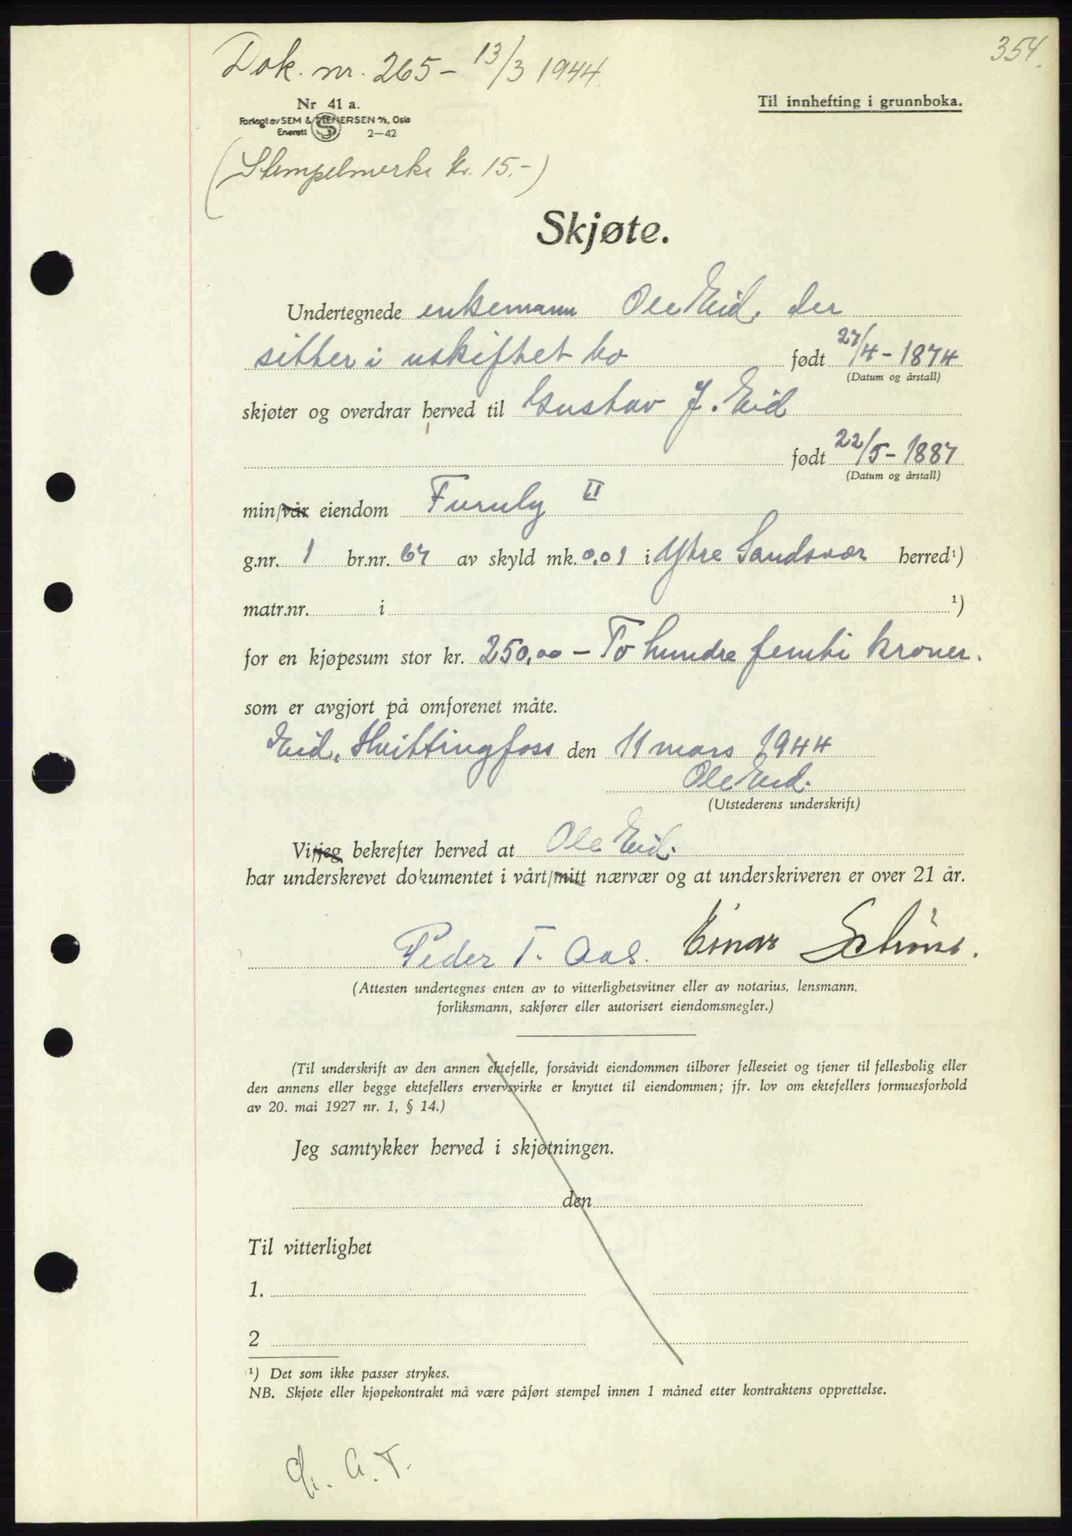 354.
Dok. nr. 265 – 13/3 1944
Nr 41 a.
Til innhefting i grunnboka.
Forlagt av SEM & STENERSEN A/S, Oslo
Enerett S 2—42
(Stempelmerke kr. 15.-)
Skjøte.
Undertegnede enkemann Ole Eid, der
sitter i uskiftet bo født 27/4 - 1874
(Datum og årstall)
skjøter og overdrar herved til Gustav J. Eid
født 22/5 - 1887
(Datum og årstall)
min/vår eiendom Furuly II
g.nr. 1 br.nr. 67 av skyld mk. 0.01 i Ytre Sandsvær herred¹)
matr.nr. i ¹)
for en kjøpesum stor kr. 250,00 – To hundre femti kroner.
som er avgjort på omforenet måte.
Eid, Hvittingfoss den 11 mars 1944
Ole Eid.
(Utstederens underskrift)
Vi/jeg bekrefter herved at Ole Eid.
har underskrevet dokumentet i vårt/mitt nærvær og at underskriveren er over 21 år.
Peder T. Aas. Einar
(Attesten undertegnes enten av to vitterlighetsvitner eller av notarius, lensmann,
forliksmann, sakfører eller autorisert eiendomsmegler.)
(Til underskrift av den annen ektefelle, forsåvidt eiendommen tilhører felleseiet og tjener til fellesbolig eller
den annens eller begge ektefellers ervervsvirke er knyttet til eiendommen; jfr. lov om ektefellers formuesforhold
av 20. mai 1927 nr. 1, § 14.)
Jeg samtykker herved i skjøtningen.
den
Til vitterlighet
1.
2
¹) Det som ikke passer strykes.
NB. Skjøte eller kjøpekontrakt må være påført stempel innen 1 måned etter kontraktens opprettelse.
A.T.